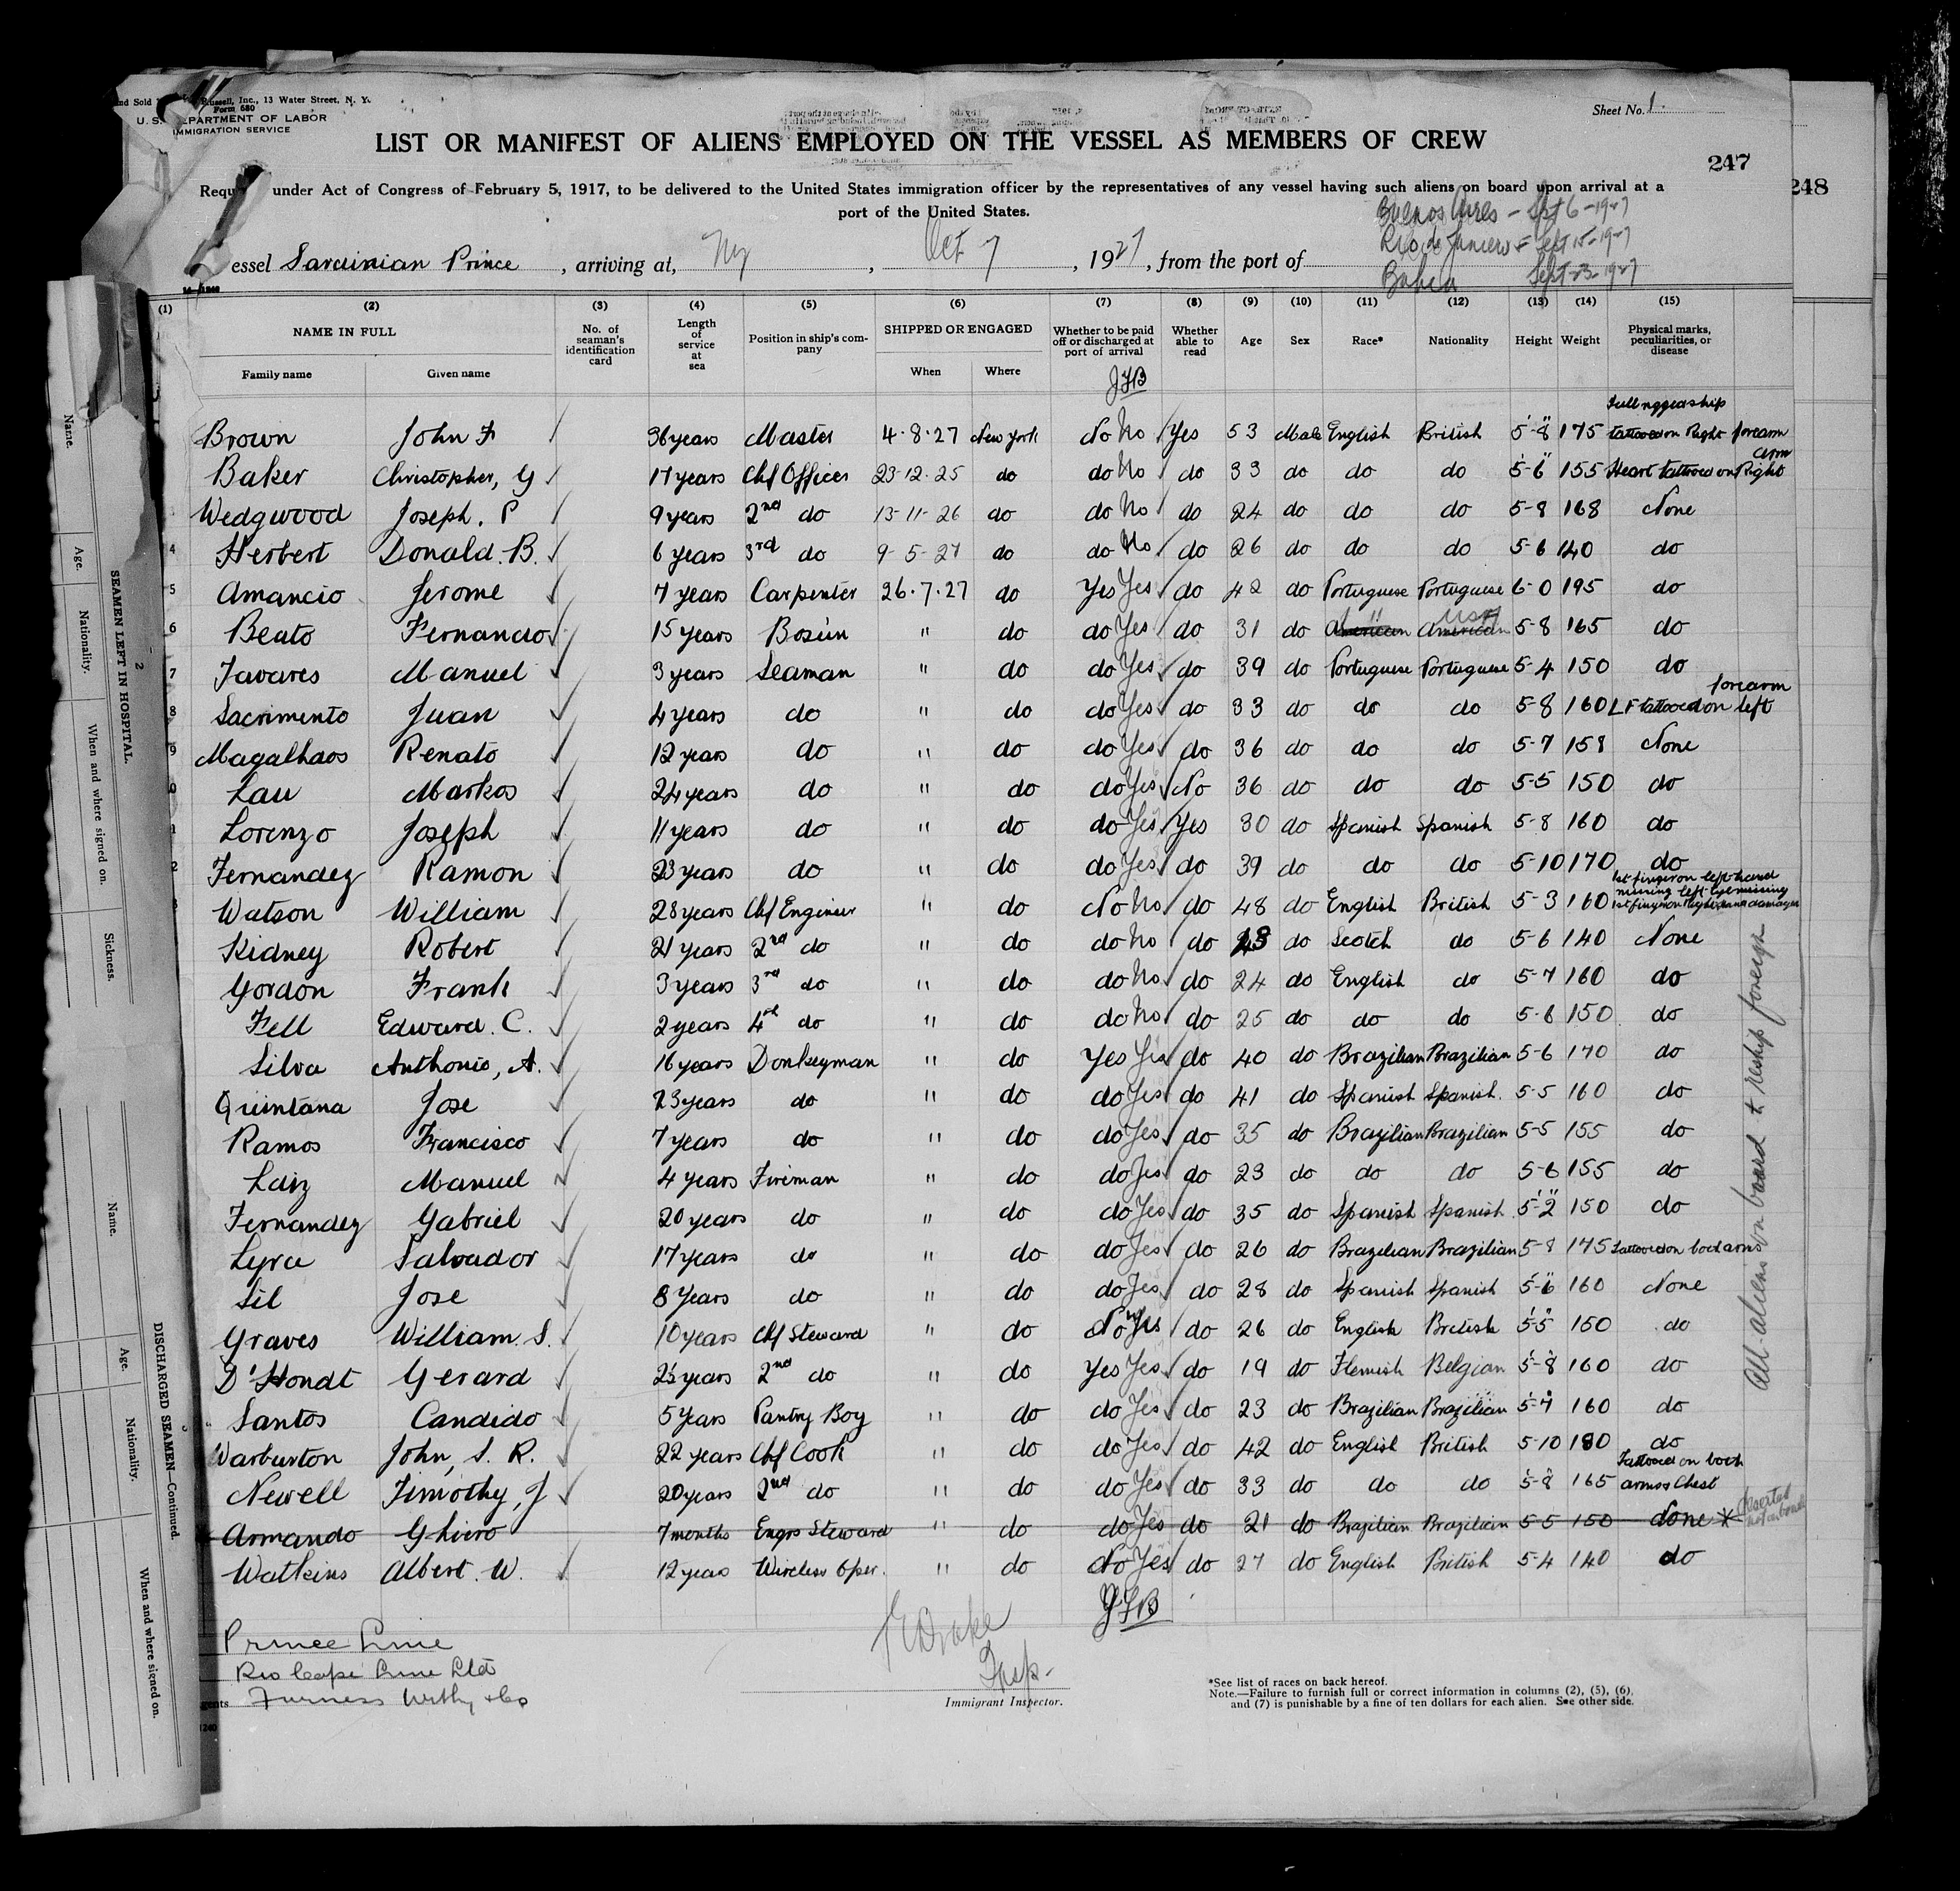 nd Sold Russell, Inc., 13 Water Street, N. Y.
Form 680
U.S. DEPARTMENT OF LABOR
IMMIGRATION SERVICE
Sheet No. 1.
LIST OR MANIFEST OF ALIENS EMPLOYED ON THE VESSEL AS MEMBERS OF CREW
247
248
Requ under Act of Congress of February 5, 1917, to be delivered to the United States immigration officer by the representatives of any vessel having such aliens on board upon arrival at a
port of the United States.
Buenos Aires - Sept 6 - 1927
Rio de Janiero = Sept 15 - 1927
Bahia Sept 23 - 1927
essel Sarainian Prince, arriving at, Ny, Oct 7, 1927, from the port of
(1) (2) (3) (4) (5) (6) (7) (8) (9) (10) (11) (12) (13) (14) (15)
NAME IN FULL
Family name Given name
No. of seaman's identification card
Length of service at sea
Position in ship's company
SHIPPED OR ENGAGED
When Where
Whether to be paid off or discharged at port of arrival
Whether able to read
Age Sex Race* Nationality Height Weight
Physical marks, peculiarities, or disease
JFB
Brown John F 36 years Master 4.8.27 New York No No Yes 53 Male English British 5-8 175 Full rigged ship tattooed on Right forearm
Baker Christopher, G 17 years Chf Officer 23.12.25 do do No do 33 do do do 5-6 155 Heart tattooed on Right arm
Wedgwood Joseph. P 9 years 2nd do 13-11-26 do do No do 24 do do do 5-8 168 None
4 Herbert Donald. B. 6 years 3rd do 9-5-27 do do No do 26 do do do 5-6 140 do
5 Amancio Jerome 7 years Carpenter 26.7.27 do Yes Yes do 42 do Portuguese Portuguese 6-0 195 do
6 Beato Fernando 15 years Bosun " do do Yes do 31 do American " American USA 5-8 165 do
7 Tavares Manuel 3 years Seaman " do do Yes do 39 do Portuguese Portuguese 5-4 150 do
8 Sacrimento Juan 4 years do " do do Yes do 33 do do do 5-8 160 L F tattooed on left forearm
9 Magalhaos Renato 12 years do " do do Yes do 36 do do do 5-7 158 None
0 Lau Markos 24 years do " do do Yes No 36 do do do 5-5 150 do
1 Lorenzo Joseph 11 years do " do do Yes Yes 30 do Spanish Spanish 5-8 160 do
2 Fernandez Ramon 23 years do " do do Yes do 39 do do do 5-10 170 do
3 Watson William 28 years Chf Engineer " do No No do 48 do English British 5-3 160 1st finger on left hand missing left eye missing 1st finger on Right hand damaged
Kidney Robert 21 years 2nd do " do do No do do Scotch do 5-6 140 None
Gordon Frank 3 years 3rd do " do do No do 24 do English do 5-7 160 do
Fell Edward. C. 2 years 4th do " do do No do 25 do do do 5-6 150 do
Silva Anthonio, A. 16 years Donkeyman " do Yes Yes do 40 do Brazilian Brazilian 5-6 170 do
Quintana Jose 23 years do " do do Yes do 41 do Spanish Spanish. 5-5 160 do
Ramos Francisco 7 years do " do do Yes do 35 do Brazilian Brazilian 5-5 155 do
Laiz Manuel 4 years Fireman " do do Yes do 23 do do do 5-6 155 do
Fernandez Gabriel 20 years do " do do Yes do 35 do Spanish Spanish 5-2 150 do
Lyra Salvador 17 years do " do do Yes do 26 do Brazilian Brazilian 5-8 175 Tattooed on both arms
Sil Jose 8 Years do " do do Yes do 28 do Spanish Spanish 5-6 160 None
Graves William S. 10 years Chf Steward " do No Yes do 26 do English British 5-5 150 do
D'Hondt Gerard 2½ years 2nd do " do Yes Yes do 19 do Flemish Belgian 5-8 160 do
Santos Candido 5 Years Pantry Boy " do do Yes do 23 do Brazilian Brazilian 5-7 160 do
Warburton John, S. R. 22 years Chf Cook " do do Yes do 42 do English British 5-10 180 do
Newell Timothy, J 20 years 2nd do " do do Yes do 33 do do do 5-8 165 Tattooed on both arms & Chest
Armando Ghiero 7 months Engrs Steward " do do Yes do 21 do Brazilian Brazilian 5-5 150 None * deserted not on board
Watkins Albert. W. 12 years Wireless Oper. " do No Yes do 27 do English British 5-4 140 do
JFB
All aliens on board & reship foreign
Prince Line
Rio Cape Line Ltd
gents Furness Withy & Co
1240
Drake
Insp.
Immigrant Inspector.
*See list of races on back hereof.
Note.—Failure to furnish full or correct information in columns (2), (5), (6),
and (7) is punishable by a fine of ten dollars for each alien. See other side.
SEAMEN LEFT IN HOSPITAL.
2
Name. Age. Nationality. When and where signed on. Sickness.
DISCHARGED SEAMEN—Continued.
Name. Age. Nationality. When and where signed on.